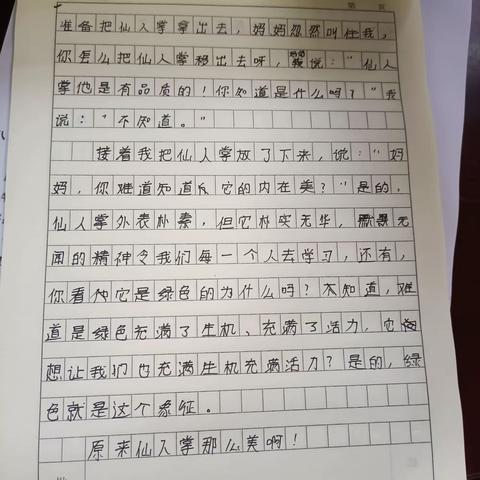 准备把仙人掌拿出去，妈妈忽然叫住我，
你怎么把仙人掌移出去呀，妈妈说："仙人
掌他是有品质的！你知道是什么吗？"我
说："不知道。"
接着我把仙人掌放了下来，说："妈
妈，你难道知道它的内在美？"是的，
仙人掌外表朴素，但它朴实无华，默默无
闻的精神令我们每一个人去学习，还有，
你看它是绿色的为什么吗？不知道，难
道是绿色充满了生机、充满了活力，它
想让我们也充满生机充满活力？是的，绿
色就是这个象征。
原来仙人掌那么美啊！